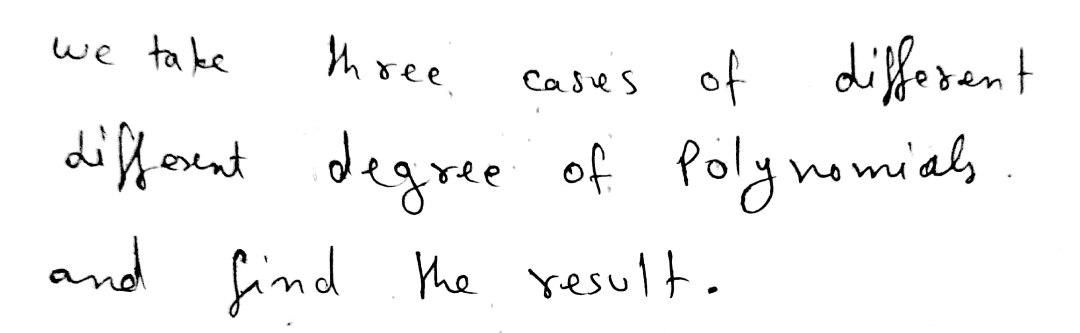 we take three cases of different
different degree of Polynomials.
and find the result.